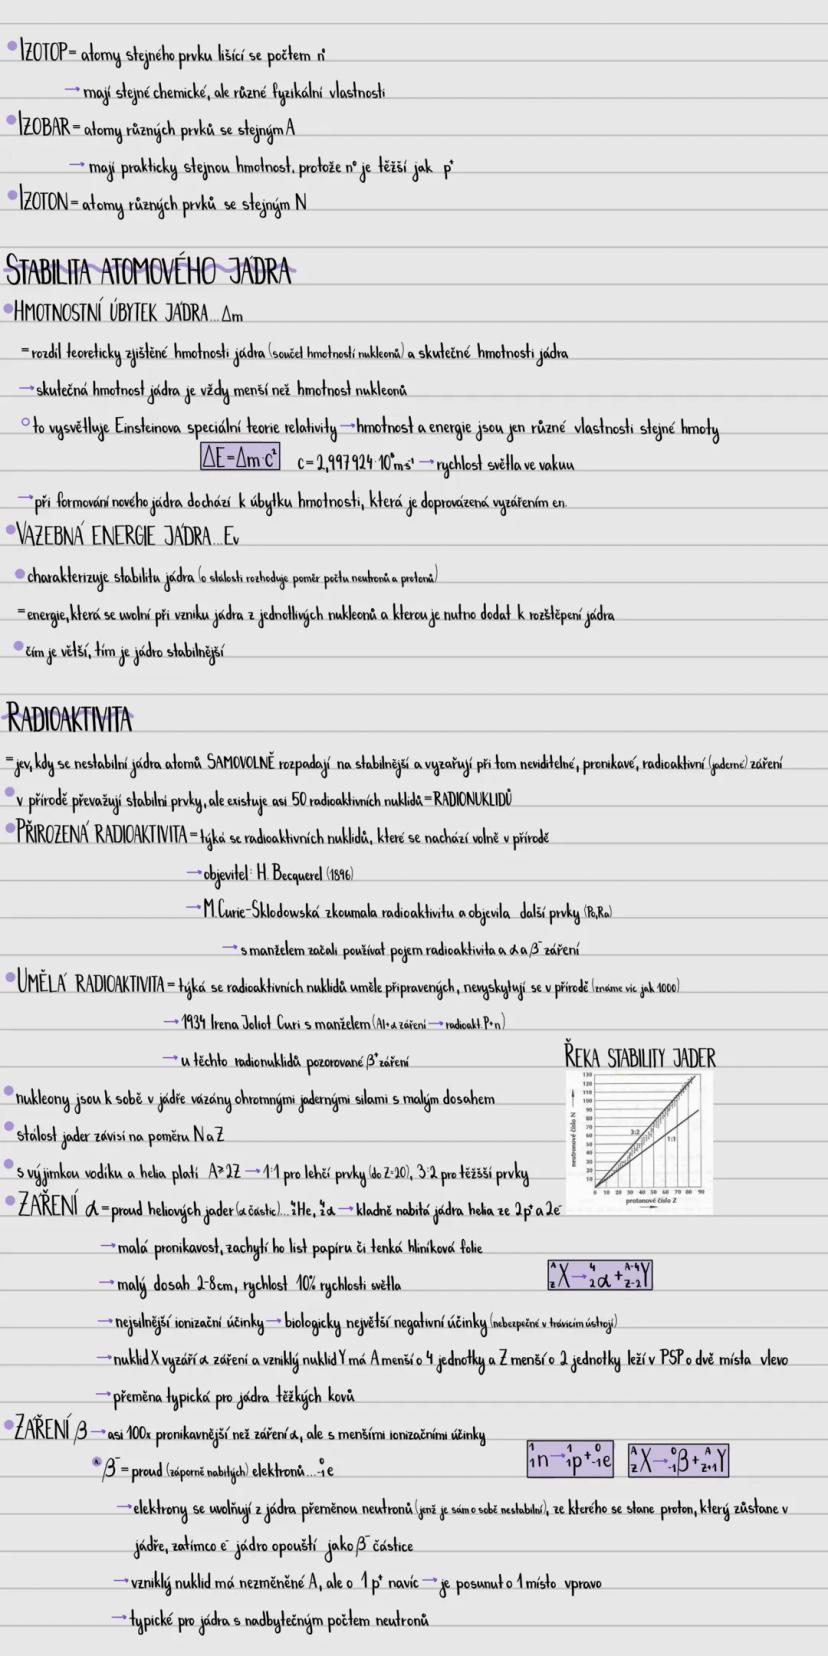 IZOTOP = atomy stejného prvku lišící se počtem n°
→ mají stejné chemické, ale různé fyzikální vlastnosti
IZOBAR = atomy různých prvků se stejným A
→ mají prakticky stejnou hmotnost, protože n° je těžší jak p⁺
IZOTON = atomy různých prvků se stejným N
STABILITA ATOMOVÉHO JÁDRA
HMOTNOSTNÍ ÚBYTEK JÁDRA...Δm
= rozdíl teoreticky zjištěné hmotnosti jádra (součet hmotností nukleonů) a skutečné hmotnosti jádra
→ skutečná hmotnost jádra je vždy menší než hmotnost nukleonů
to vysvětluje Einsteinova speciální teorie relativity → hmotnost a energie jsou jen různé vlastnosti stejné hmoty
ΔE=Δm·c² c = 2,997924·10⁸ms⁻¹ → rychlost světla ve vakuu
→ při formování nového jádra dochází k úbytku hmotnosti, která je doprovázená vyzářením en.
VAZEBNÁ ENERGIE JÁDRA...Ev
charakterizuje stabilitu jádra (o stálosti rozhoduje poměr počtu neutronů a protonů)
= energie, která se uvolní při vzniku jádra z jednotlivých nukleonů a kterou je nutno dodat k rozštěpení jádra
čím je větší, tím je jádro stabilnější
RADIOAKTIVITA
= jev, kdy se nestabilní jádra atomů SAMOVOLNĚ rozpadají na stabilnější a vyzařují při tom neviditelné, pronikavé, radioaktivní (jaderné) záření
v přírodě převažují stabilní prvky, ale existuje asi 50 radioaktivních nuklidů = RADIONUKLIDŮ
PŘIROZENÁ RADIOAKTIVITA = týká se radioaktivních nuklidů, které se nachází volně v přírodě
→ objevitel: H. Becquerel (1896)
→ M.Curie-Sklodowská zkoumala radioaktivitu a objevila další prvky (Po,Ra)
→ s manželem začali používat pojem radioaktivita a α a β⁻ záření
UMĚLÁ RADIOAKTIVITA = týká se radioaktivních nuklidů uměle připravených, nevyskytují se v přírodě (známe víc jak 1000)
→ 1934 Irena Joliot Curi s manželem (Al+α záření → radioakt. P+n)
→ u těchto radionuklidů pozorované β⁺ záření
ŘEKA STABILITY JADER
neutronové číslo N
130
120
110
100
90
80
70
60
50
40
30
20
10
3:2
1:1
0 10 20 30 40 50 60 70 80 90
protonové číslo Z
nukleony jsou k sobě v jádře vázány ohromnými jadernými silami s malým dosahem
stálost jader závisí na poměru N a Z
s výjimkou vodíku a helia platí A≥2Z → 1:1 pro lehčí prvky (do Z=20), 3:2 pro těžšší prvky
ZÁŘENÍ α = proud heliových jader (α částic)...⁴₂He, ⁴₂α → kladně nabitá jádra helia ze 2p⁺ a 2e⁻
→ malá pronikavost, zachytí ho list papíru či tenká hliníková folie
→ malý dosah 2-8cm, rychlost 10% rychlosti světla
ᴬ_Z X → ⁴₂α + ᴬ⁻⁴_Z-2 Y
→ nejsilnější ionizační účinky → biologicky největší negativní účinky (nebezpečné v trávicím ústrojí)
→ nuklid X vyzáří α záření a vzniklý nuklid Y má A menší o 4 jednotky a Z menší o 2 jednotky leží v PSP o dvě místa vlevo
→ přeměna typická pro jádra těžkých kovů
ZÁŘENÍ β → asi 100x pronikavnější než záření α, ale s menšími ionizačními účinky
¹₁n → ¹₁p + ⁰₋₁e ᴬ_Z X → ⁰₋₁β + ᴬ_Z+1 Y
β⁻ = proud (záporně nabitých) elektronů...⁰₋₁e
→ elektrony se uvolňují z jádra přeměnou neutronů (jenž je sám o sobě nestabilní), ze kterého se stane proton, který zůstane v
jádře, zatímco e⁻ jádro opouští jako β⁻ částice
→ vzniklý nuklid má nezměněné A, ale o 1p⁺ navíc → je posunut o 1 místo vpravo
→ typické pro jádra s nadbytečným počtem neutronů